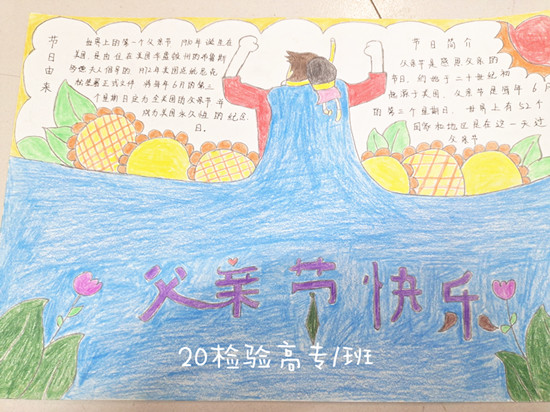 节日由来
世界上的第一个父亲节 1910年诞生在
美国,是由住在美国华盛顿州的布鲁斯
多德夫人倡导的 1972年美国总统尼克
松签署正式文件 将每年6月的第三
个星期日定为全美国的父亲节 并
成为美国永久性的纪念
日。
节日简介
父亲节是感恩父亲的
节日。约始于二十世纪初
起源于美国。父亲节是每年6月
的第三个星期日。世界上有52个
国家和地区是在这一天过
父亲节
父亲节快乐
20检验高专1班